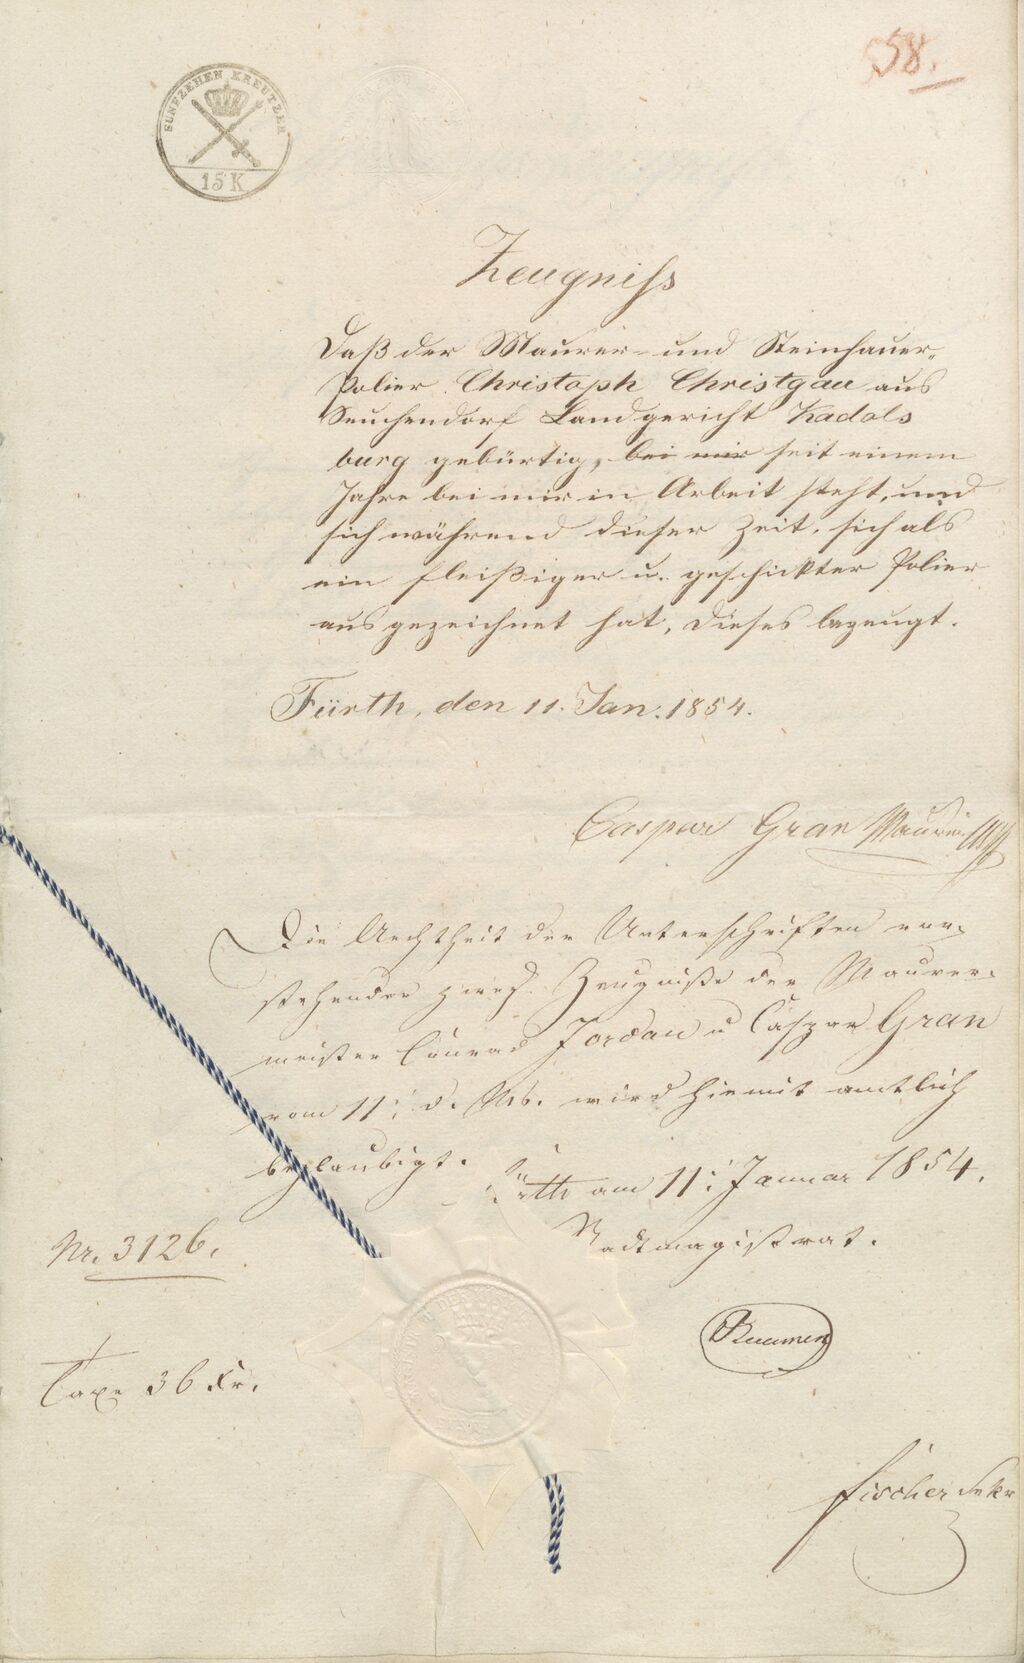 58.
FUNFZEHEN KREUTZER
15 K
Zeugniss
Daß der Maurer- und Steinhauer-
Polier Christoph Christgau aus
Seuchendorf Landgericht Kadols
burg gebürtig, bei mir seit einem
Jahre bei mir in Arbeit steht, und
sich während dieser Zeit, sich als
ein fleißiger u. geschickter Polier
ausgezeichnet hat, dieses bezeugt.
Fürth, den 11. Jan. 1854.
Caspar Gran
Die Aechtheit der Unterschriften vor-
stehender zwey Zeugniße der Maurer-
meister Conrad Jordan u Caspar Gran
vom 11: d. Mts. wird hiemit amtlich
beglaubigt.
Fürth am 11: Januar 1854.
Stadtmagistrat.
Nr. 3126.
Taxe 36 Kr.
Fischer Sekr